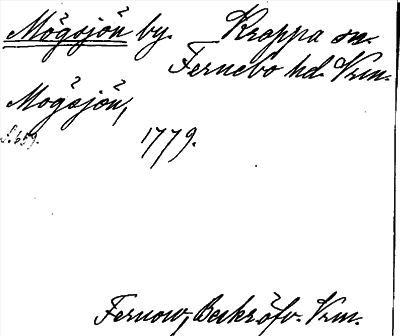 Mögsjön by. Kroppa sn.
Fernebo hd. Vrm.
Mogsjön,
S. 659.
1779.
Fernow, Beskrifv. Vrm.